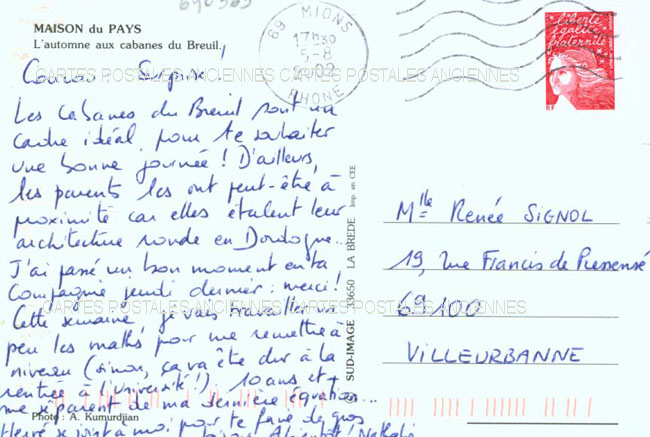 690363
MAISON du PAYS
L'automne aux cabanes du Breuil.
69 MIONS
17H30
5-8
2002
RHONE
liberté
égalité
fraternité
RF
Coucou Surprise !
CARTES POSTALES ANCIENNES CARTES POSTALES ANCIENNES
Les Cabanes du Breuil sont un
cadre idéal pour te souhaiter
une bonne journée ! D'ailleurs,
les parents les ont peut-être à
proximité car elles étalent leur
architecture ronde en Dordogne...
J'ai passé un bon moment en ta
Compagnie jeudi dernier : merci !
CARTES POSTALES ANCIENNES CARTES POSTALES ANCIENNES
Cette semaine, je vais travailler un
peu les maths pour me remettre à
niveau (sinon, ça va être dur à la
rentrée à l'université !) 10 ans et +
me séparent de ma dernière équation...
Photo : A. Kumurdjian
Hervé se joint à moi pour te faire de gros
bisous. A bientôt ! Nathalie
SUD-IMAGE 33650 LA BREDE Imp. en CEE
Mlle Renée SIGNOL
19, rue Francis de Pressensé
69100
VILLEURBANNE